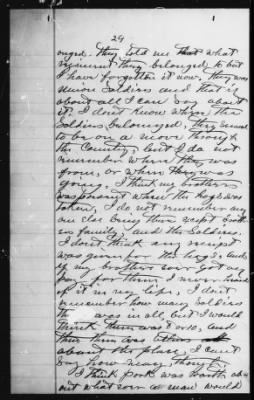 29
ouged. They told me that what
regiment they belonged to but
I have forgotten it now, they was
union Soldiers and that is
about all I can say about
it. I don't know where the
Soldiers belonged, they seemed
to be on a move through
the Country, but I do not
remember where they was
from, or where they was
going. I think my brothers
was present when the hogs was
taken, I do not remember any
one else being there except
family, and the Soldiers.
I don't think any receipt
was given for the hogs, and
if my brothers ever got any
pay for them I never heard
of it in my life, I don't
remember how many Soldiers
there was in all, but I would
think there was 8 or 10, and
there was others
about the place, I can't
say how many though.
I think pork was worth ab
out what ever a man would